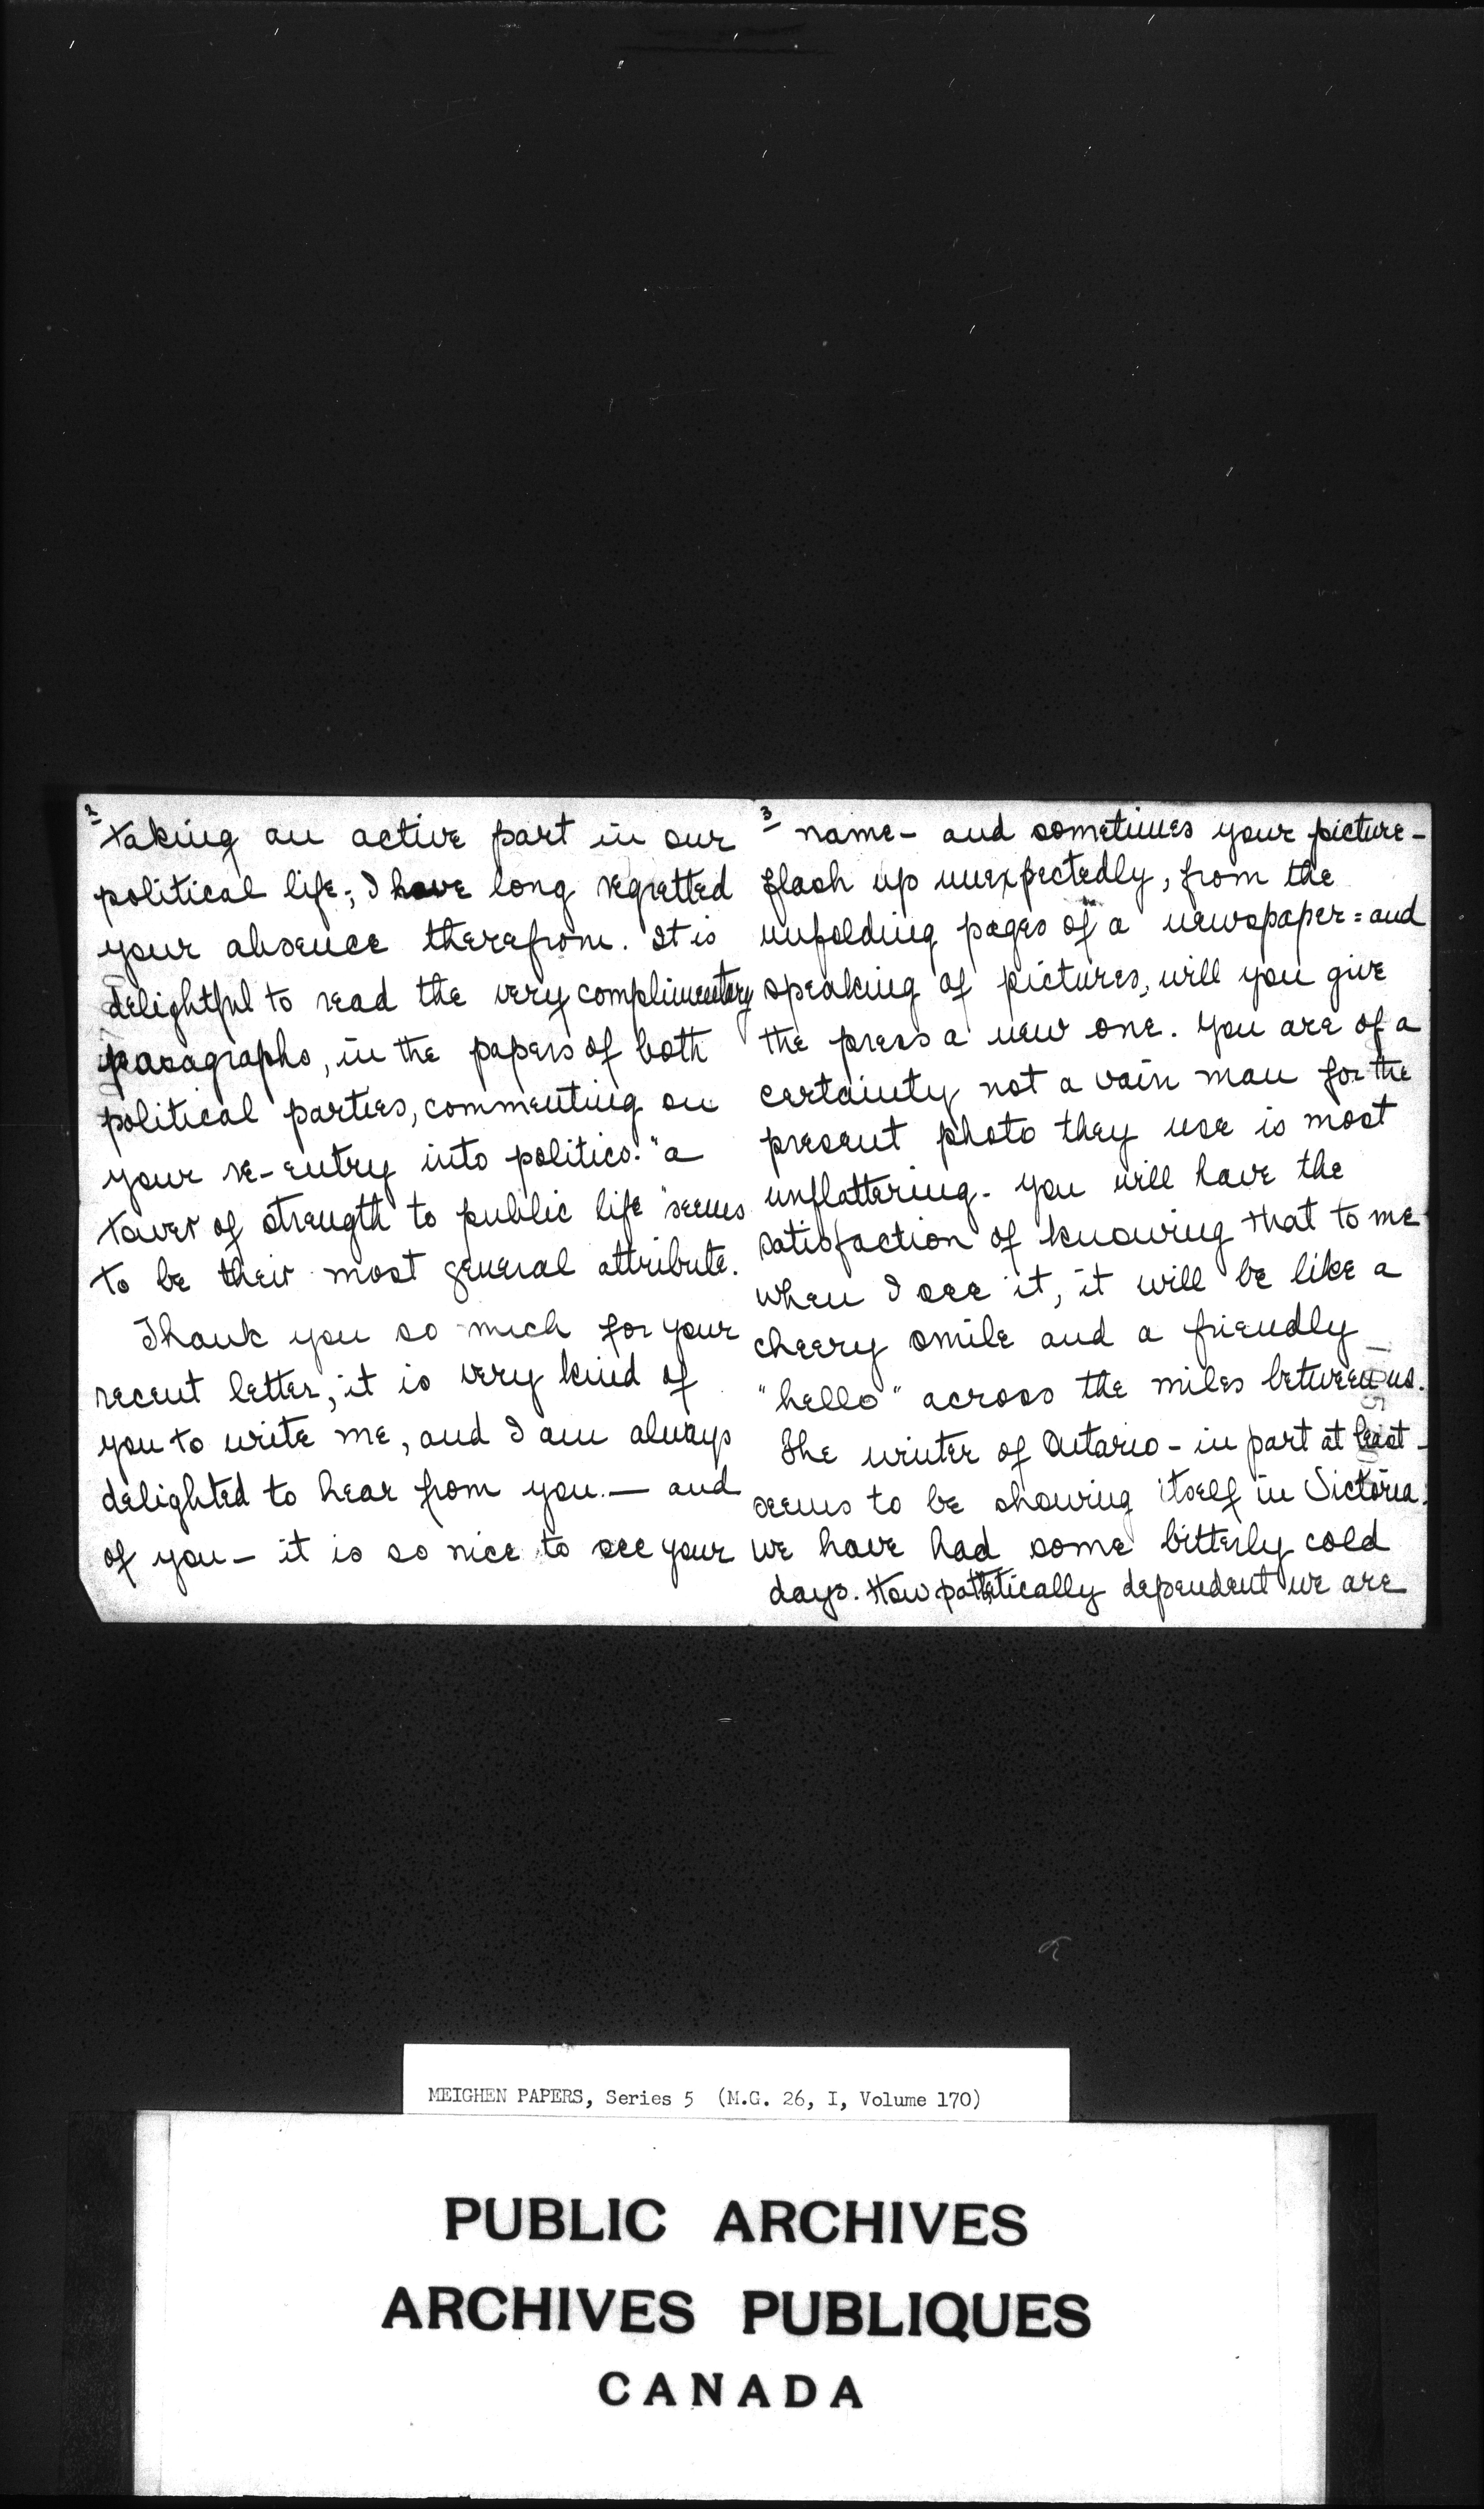 2
taking an active part in our
political life; I have long regretted
your absence therefrom. It is
delightful to read the very complimentary
paragraphs, in the papers of both
political parties, commenting on
your re-entry into politics. "a
tower of strength to public life" seems
to be their most general attribute.
Thank you so much for your
recent letter, it is very kind of
you to write me, and I am always
delighted to hear from you. — and
of you - it is so nice to see your
3
name - and sometimes your picture -
flash up unexpectedly, from the
unfolding pages of a newspaper = and
speaking of pictures, will you give
the press a new one. You are of a
certainty not a vain man for the
present photo they use is most
unflattering. You will have the
satisfaction of knowing that to me
when I see it, it will be like a
cheery smile and a friendly
"hello" across the miles between us.
The winter of Ontario - in part at least -
seems to be showing itself in Victoria.
We have had some bitterly cold
days. How pathetically dependent we are
MEIGHEN PAPERS, Series 5 (M.G. 26, I, Volume 170)
PUBLIC ARCHIVES
ARCHIVES PUBLIQUES
CANADA